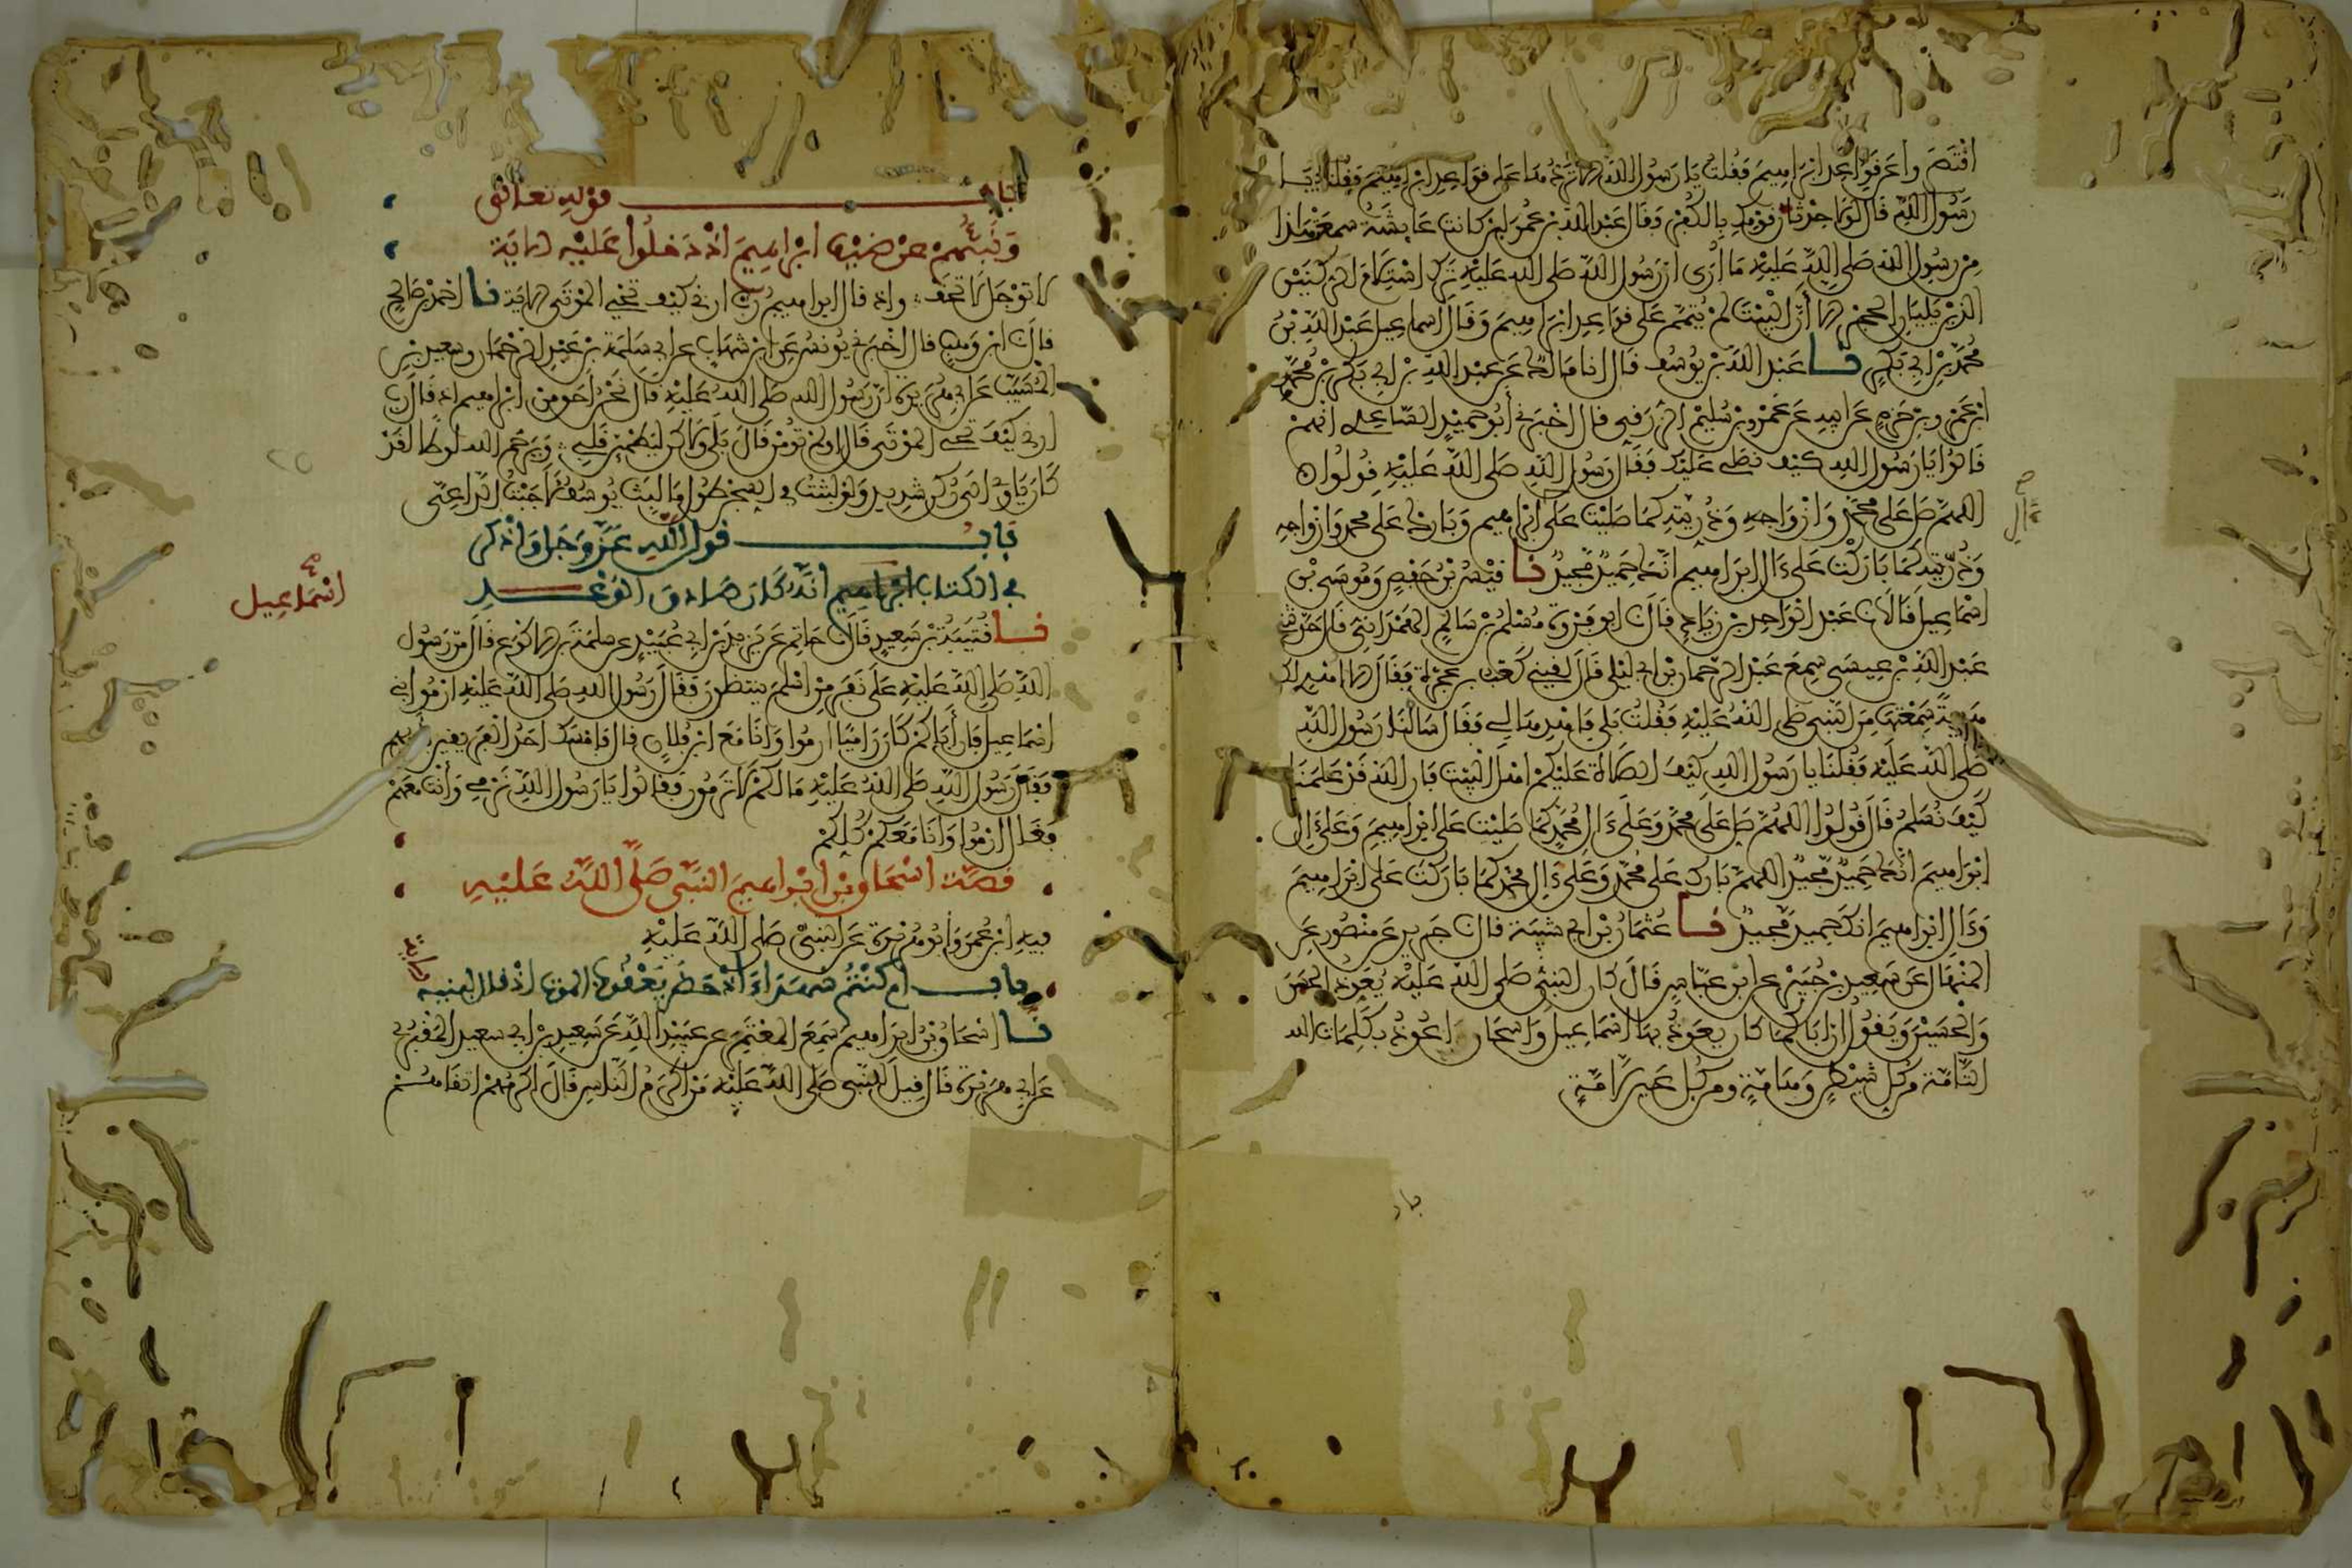 اقتصروا عن قواعد ابراهيم فقلت يا رسول الله الا تردها على قواعد ابراهيم فقال
رسول الله قال لولا حدثان قومك بالكفر وقال عبد الله بن عمر لئن كانت عايشة سمعت هذا
من رسول الله صلى الله عليه ما أرى ان رسول الله صلى الله عليه ترك استلام الركنين
الذين يليان الحجر الا أن البيت لم يتمم على قواعد ابراهيم وقال اسماعيل عبد الله بن
محمد بن ابي بكر نا عبد الله بن يوسف قال انا مالك عن عبد الله بن ابي بكر بن محمد
ابن عمرو بن حزم عن ابيه عن عمرو بن سليم الزرقي قال اخبرني أبو حميد الساعدي انهم
قالوا يا رسول الله كيف نصلي عليك فقال رسول الله صلى الله عليه قولوا
اللهم صل على محمد وازواجه وذريته كما صليت على ابراهيم وبارك على محمد وازواجه
ءال
وذريته كما باركت على ءال ابراهيم انك حميد مجيد نا قيس بن حفص وموسى بن
اسماعيل قالا نا عبد الواحد بن زياد قال نا ابو فروة مسلم بن سالم الهمداني قال حدثني
عبد الله بن عيسى سمع عبد الرحمان بن ابي ليلى قال لقيني كعب بن عجرة فقال الا اهدي لك
هدية سمعتها من النبي صلى الله عليه فقلت بلى فاهدها لي فقال سالنا رسول الله
صلى الله عليه فقلنا يا رسول الله كيف الصلاة عليكم اهل البيت فان الله قد علمنا
كيف نسلم قال قولوا اللهم صل على محمد وعلى ءال محمد كما صليت على ابراهيم وعلى ءال
ابراهيم انك حميد مجيد اللهم بارك على محمد وعلى ءال محمد كما باركت على ابراهيم
وءال ابراهيم انك حميد مجيد نا عثمان بن ابي شيبة قال نا جرير عن منصور عن
المنهال عن سعيد بن جبير عن ابن عباس قال كان النبي صلى الله عليه يعوذ الحسن
والحسين ويقول ان اباكما كان يعوذ بها اسماعيل واسحاق اعوذ بكلمات الله
التامة من كل شيطان وهامة ومن كل عين لامة
باب
باب قوله تعالى
ونبئهم عن ضيف ابراهيم اذ دخلوا عليه الاية
لا توجل لا تخف واذ قال ابراهيم رب ارني كيف تحيي الموتى الاية نا احمد بن صالح
قال نا ابن وهب قال اخبرني يونس عن ابن شهاب عن ابي سلمة بن عبد الرحمان وسعيد بن
المسيب عن ابي هريرة ان رسول الله صلى الله عليه قال نحن احق من ابراهيم اذ قال رب
ارني كيف تحي الموتى قال اولم تومن قال بلى ولاكن ليطمئن قلبي ويرحم الله لوطا لقد
كان ياوي الى ركن شديد ولو لبثت في السجن طول ما لبث يوسف لاجبت الداعي
باب قول الله عز وجل واذكر
في الكتاب ابراهيم انه كان صادق الوعد
اسماعيل
نا قتيبة بن سعيد قال نا حاتم عن يزيد بن ابي عبيد عن سلمة بن الاكوع قال مر رسول
الله صلى الله عليه على نفر من اسلم ينتظرون فقال رسول الله صلى الله عليه ارموا بني
اسماعيل فان أباكم كان راميا ارموا وانا مع ابن فلان قال فامسك احد الفريقين بايديهم
فقال رسول الله صلى الله عليه ما لكم لا ترمون فقالوا يا رسول الله نرمي وأنت معهم
فقال ارموا وأنا معكم كلكم
قصة اسحاق بن ابراهيم النبي صلى الله عليه
فيه ابن عمر وأبو هريرة عن النبي صلى الله عليه
باب أم كنتم شهداء اذ حضر يعقوب الموت اذ قال لبنيه
الاية
نا اسحاق بن ابراهيم سمع المعتمر عن عبيد الله عن سعيد بن ابي سعيد المقبري
عن ابي هريرة قال قيل للنبي صلى الله عليه من اكرم الناس قال اكرمهم اتقاهم